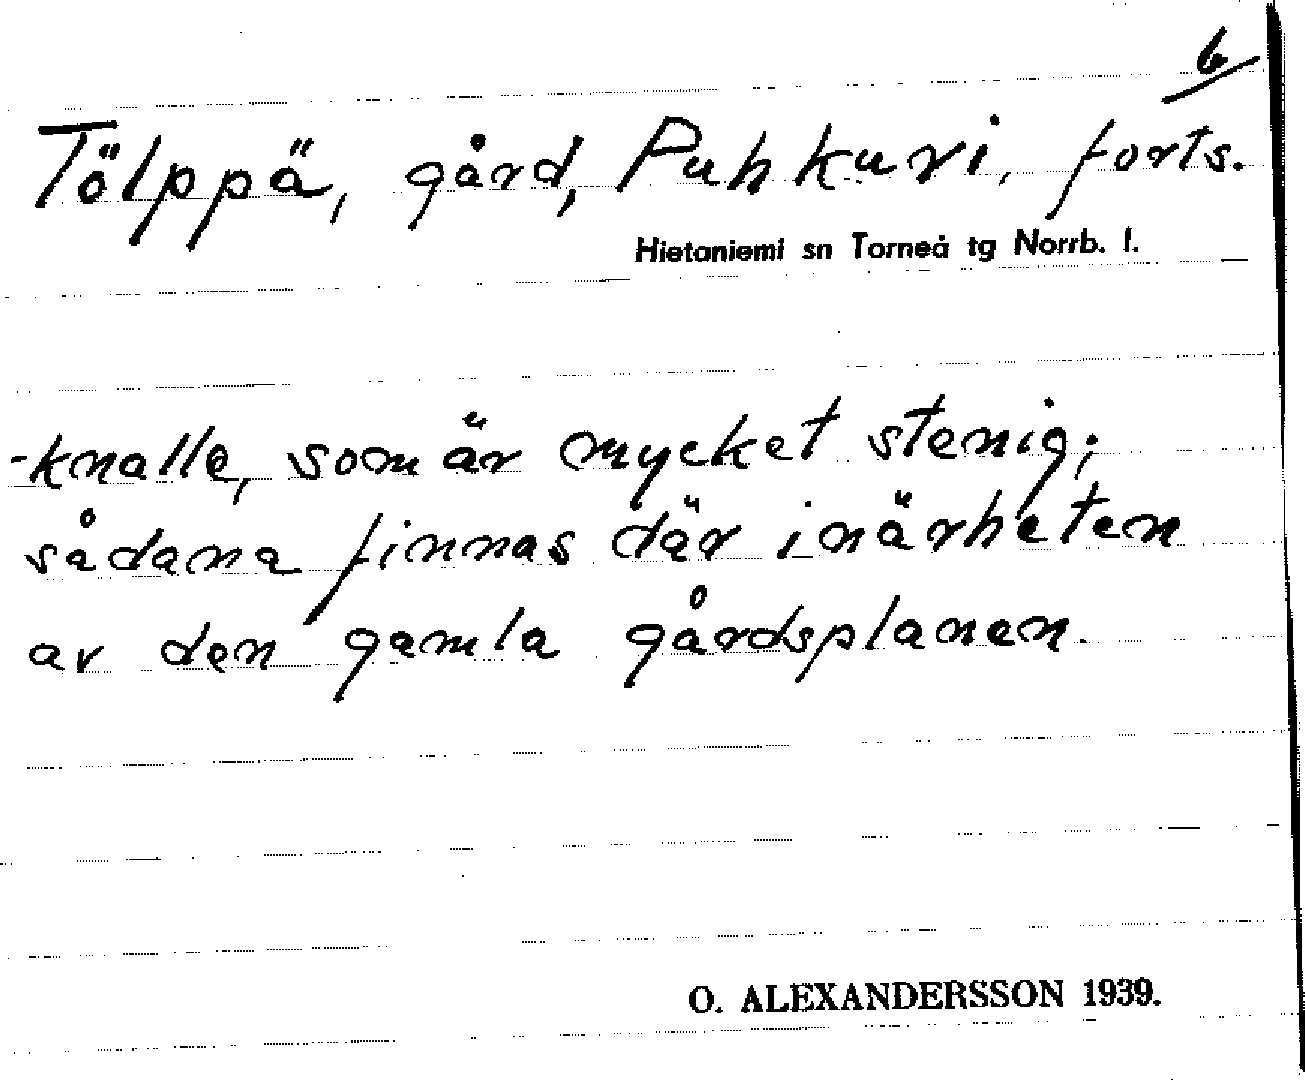 6
Tölppä, gård, Puhkuri, forts.
Hietaniemi sn Torneå tg Norrb. l.
-knalle, som är mycket stenig;
sådana finnas där i närheten
av den gamla gårdsplanen.
O. ALEXANDERSSON 1939.